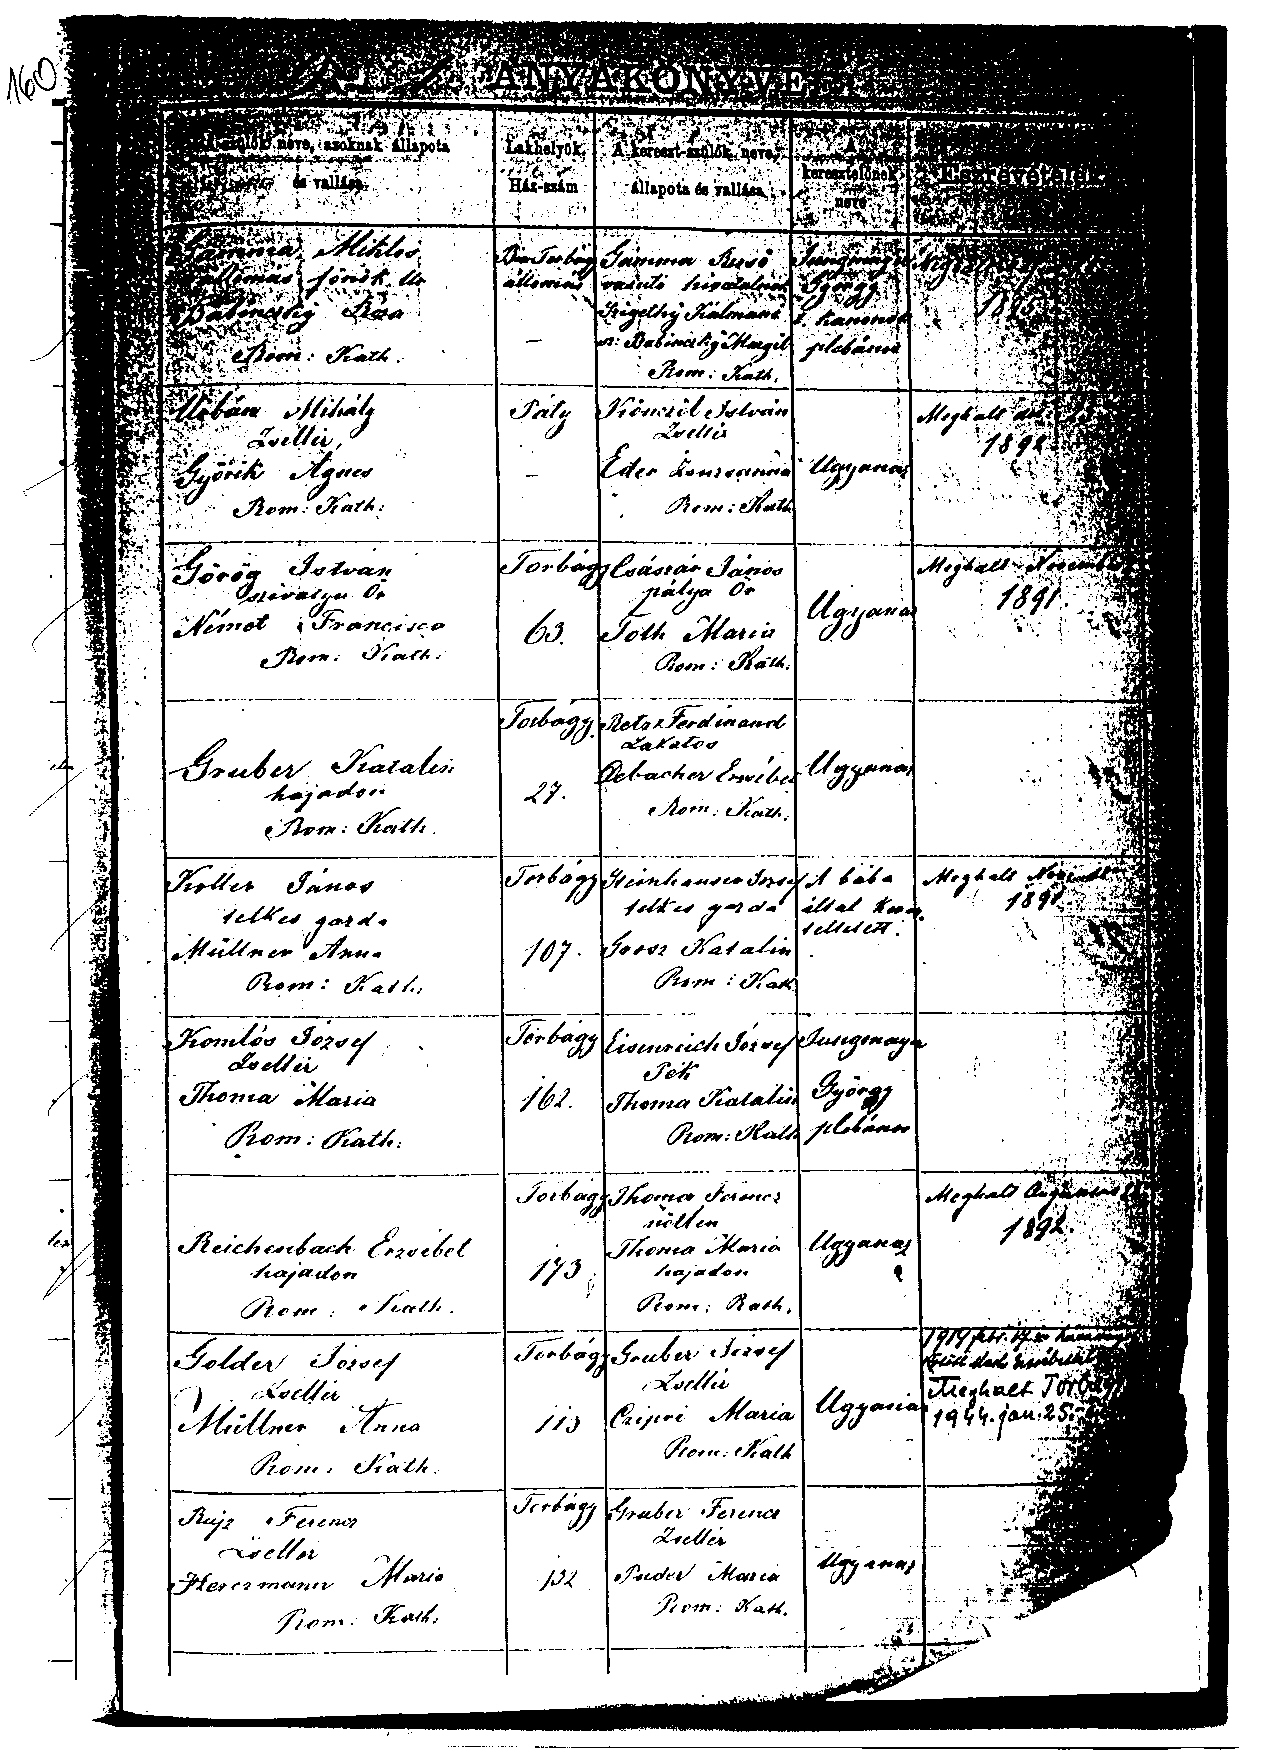 160
ANYAKÖNYVE
A szülők neve, azoknak állapota
és vallása.
Lakhelyök,
Ház-szám
A kereszt-szülők neve,
állapota és vallása.
A
keresztelőnek
neve
Észrevételek
Gamma Miklos
Babinczky Róza
Rom: Kath.
Bia Torbágy
állomás
-
Gamma Rezső
vasuti hivatalnok
Szigethy Kálmán
Babinczky Margit
Rom: Kath.
Jungmayer
György
t. kanonok
plébános
1895
Urbán Mihály
Zsellér
Győrik Ágnes
Rom: Kath:
Páty
-
Könczöl István
Zsellér
Eder Zsuzsanna
Rom: Kath
Ugyanaz
Meghalt
1892
Görög István
Ör
Német Francisca
Rom: Kath:
Torbágy
63.
Császár János
pálya Ör
Tóth Maria
Rom: Kath.
Ugyanaz
Meghalt Novemb
1891.
Gruber Katalin
hajadon
Rom: Kath.
Torbágy
27.
Retz Ferdinand
Lakatos
Erzsébet
Rom: Kath.
Ugyanaz
Koller János
telkes gazda
Müllner Anna
Rom: Kath.
Torbágy
107.
Steinhauser József
telkes gazda
Goosz Katalin
Rom: Kath
A bába
által keresz
teltetett.
Meghalt
1891
Komlós József
Zsellér
Thoma Maria
Rom: Kath:
Torbágy
162.
Eisenreich József
Pék
Thoma Katalin
Rom: Kath
Jungmayer
György
plébános
Reichenbach Erzsébet
hajadon
Rom: Kath.
Torbágy
173
Thoma Ferencz
nőtlen
Thoma Maria
hajadon
Rom: Kath.
Ugyanaz
Meghalt
1892.
Golder József
Zsellér
Müllner Anna
Rom: Kath.
Torbágy
113
Gruber József
Zsellér
Czipri Maria
Rom: Kath
Ugyanaz
1919 febr. 17
Meghalt Torbágy
1944. jan. 25.
Rujz Ferencz
Zsellér
Herczmann Maria
Rom: Kath.
Torbágy
132
Gruber Ferencz
Zsellér
Puder Maria
Rom: Kath.
Ugyanaz